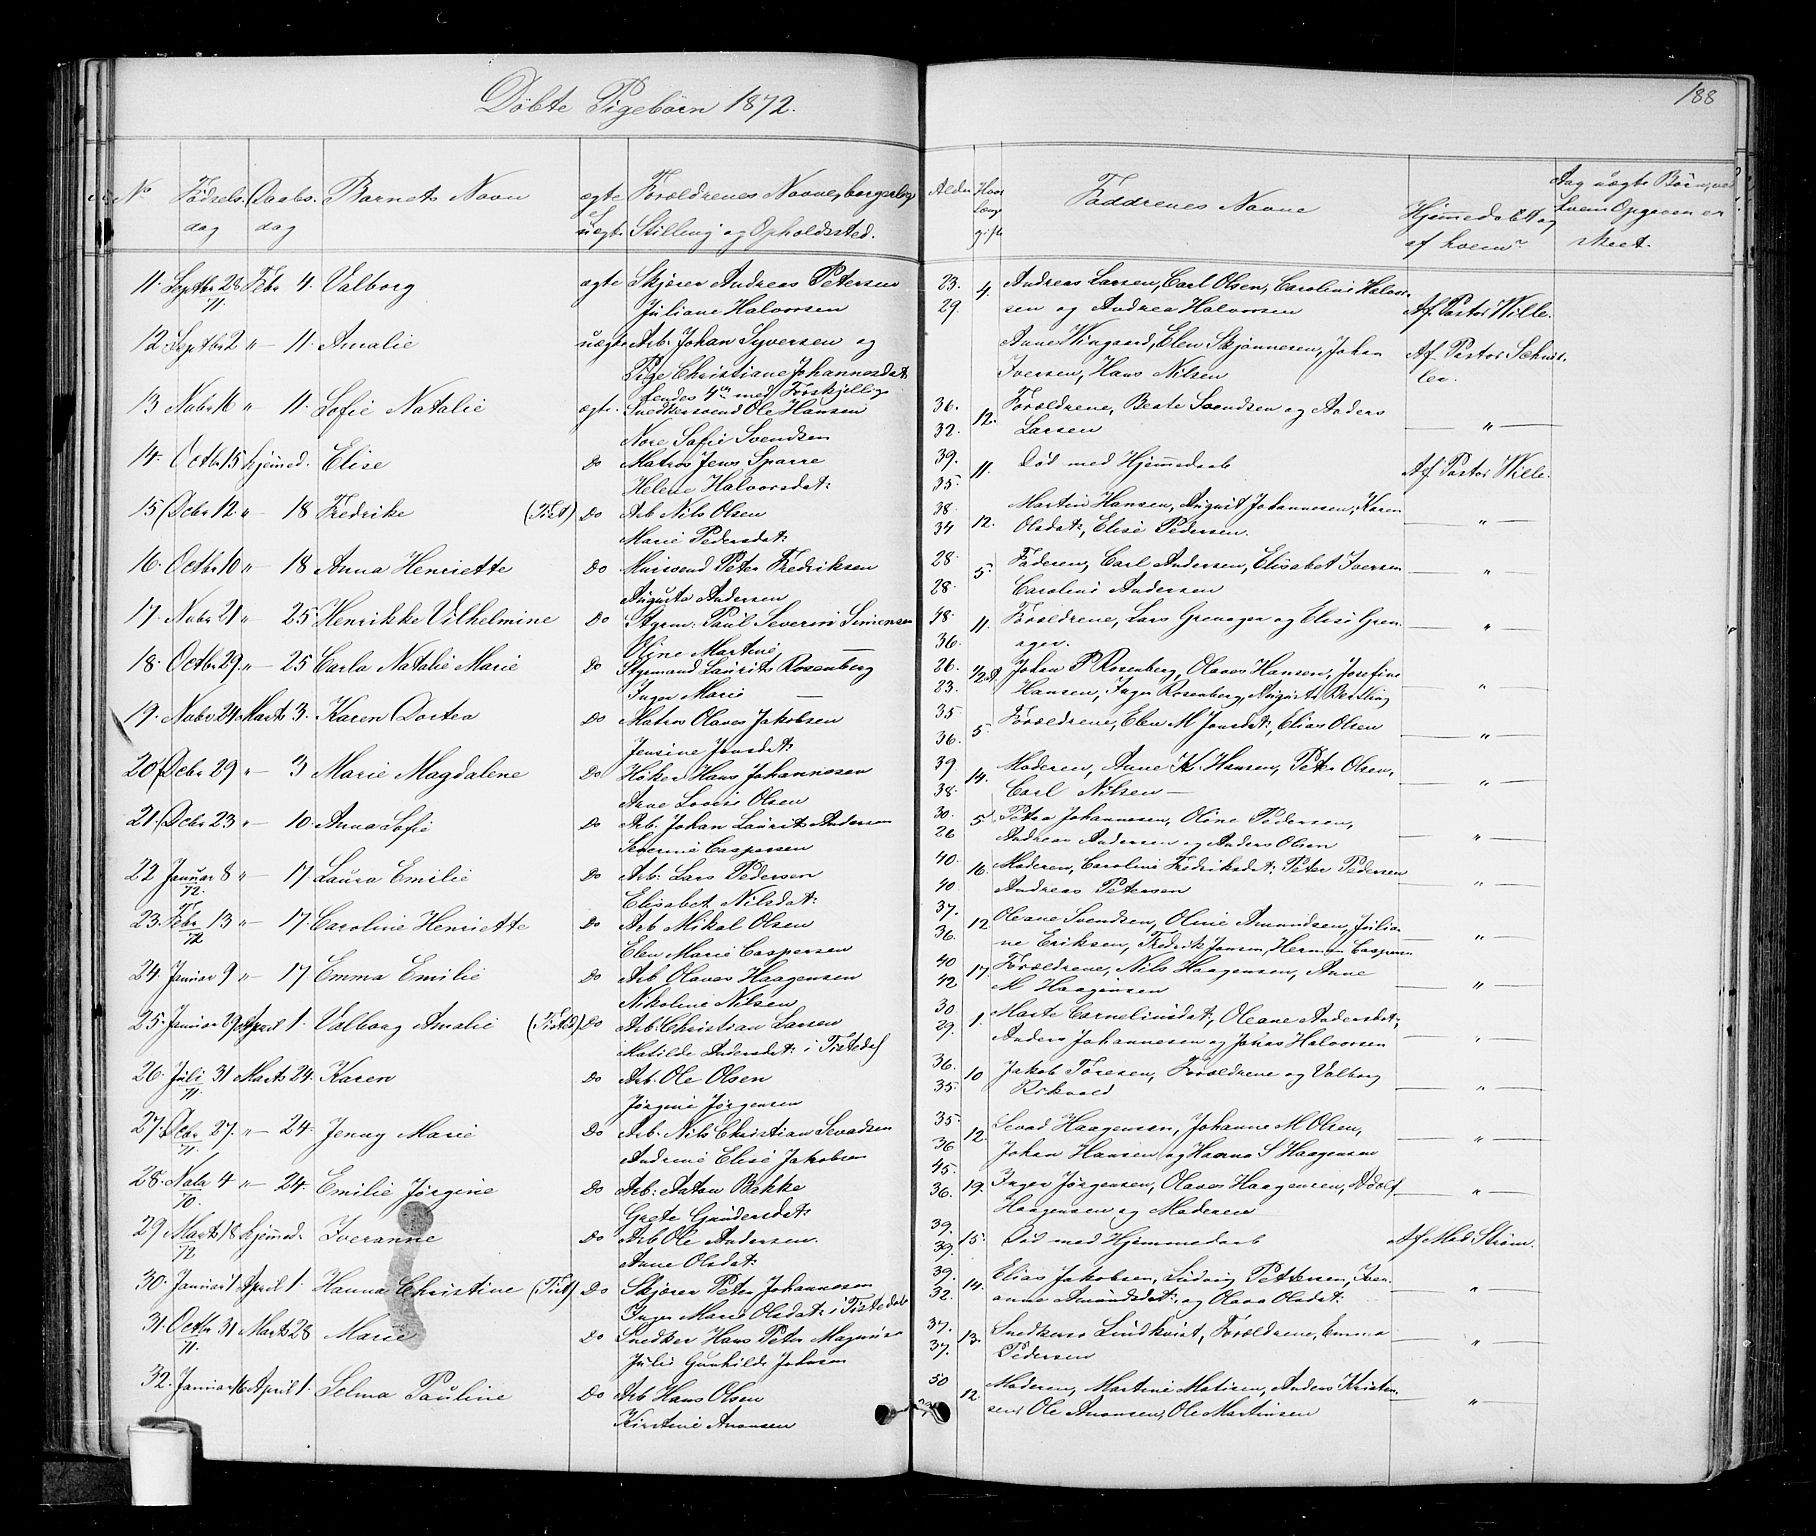 Döbte Pigebörn 1872.
188
No Födsels- dag Daabs- dag Barnets Navn ægte el. uægte Forældrenes Navne, borgerlige Stilling og Opholdssted.
Alder Hvor længe gifte Faddrenes Navne Hjemmedöbt og af hvem Angaaende uægte Börn, ved hvem Opgaven er skeet.
11. Septbr 28/71 Febr 4. Valborg ægte Skjærer Andreas Petersen 23. 4. Andreas Larsen, Carl Olsen, Caroline Halvor-
Juliane Halvorsen 29. sen og Andrea Halvorsen Af Pastor Wille.
12. Septbr 2 " 11. Amalie uægte Arb. Johan Syversen og Anne Wingaard, Elen Skjönnesen, Johan Af Pastor
Pige Christiane Johannesdat: Iversen, Hans Nilsen
hendes 4de med Forskjellige
13 Novbr 16 " 11. Sofie Natalie ægte. Snedkersvend Ole Hansen 36. 12. Forældrene, Beate Svendsen og Anders
Nore Sofie Svendsen 32. Larsen "
14. Octbr 15 hjemmed. Elise Do Matros Jens Sparre 39. 11. Död med Hjemmedaab Af Pastor Wille.
Helene Halvorsdat: 35.
15 Decbr 12 " 18 Fredrike (Tist) Do Arb Nils Olsen 38. 12. Martin Hansen, August Johannesen, Karen
Marie Pedersdat: 34 Olsdat:, Elise Pedersen. "
16. Octbr 10 " 18 Anna Henriette Do Mursvend Peter Fredriksen 28. 5. Faderen, Carl Andersen, Elisabet Iversen
Augusta Andersen 28. Caroline Andersen "
17. Novbr 21 " 25 Henrikke Vilhelmine Do Styrm: Paul Severin Simensen 38. 11. Forældrene, Lars Grenager og Elise Gren-
Oline Martine — 36. ager. "
18. Octbr 29 " 25 Carla Natalie Marie Do Styrmand Laurits Rosenberg 26. 1/2 Johan P Rosenberg, Olaves Hansen, Josefine
Inger Marie — 23. Hansen, Inger Rosenberg, Augusta "
19. Novbr 24. Marts 3. Karen Dortea Do Matros Olaves Jakobsen 35 5 Forældrene, Elen M Jonsdat:, Elias Olsen
Jensine Jonsdat: 36. "
20 Decbr 29 " 3 Marie Magdalene Do Höker Hans Johannesen 39 14. Moderen, Anne K. Hansen, Peter Olsen,
Ane Lovise Olsen 38. Carl Nilsen — "
21. Decbr 23 " 10. Anna Sofie Do Arb. Johan Laurits Andersen 30. 5 Petra Johannesen, Oline Pedersen,
Severine Caspersen 26 Andreas Andersen og Anders Olsen "
22 Januar 8/72. " 17. Laura Emilie Do Arb: Lars Pedersen 40. 16. Moderen, Caroline Fredriksdat: Peter Pedersen
Elisabet Nilsdat: 40. Andreas Petersen "
23. Febr 13/72 " 17. Caroline Henriette Do Arb Mikal Olsen 37. 12 Oleane Svendsen, Oline Amundsen, Julia-
Elen Marie Caspersen 36. ne Eriksen, Fredrik Jonsen, Herman Caspersen "
24. Januar 9 " 17. Emma Emilie Do Arb Olaves Haagensen 40 17. Forældrene, Nils Haagensen, Anne
Nikoline Nilsen 42 M Haagensen "
25. Januar 29 April 1. Valborg Amalie (Tisted) Do Arb: Christian Larsen 30 1. Marte Corneliusdat:, Oleane Andersdat:,
Matilde Andersdat: i Tistedal 29. Anders Johannesen og Jonas Halvorsen "
26. Juli 31/71. Marts 24. Karen Do Arb: Ole Olsen 36. 10 Jakob Toresen, Forældrene og Valborg
Jörgine Jörgensen 35. Rökvold "
27. Decbr 27./71. " 24. Jenny Marie Do Arb: Nils Christian Sevadsen 35. 12. Sevad Haagensen, Johanne M Olsen,
Andrine Elise Jakobsen 36 Johan Hansen og Hanna S Haagensen "
28. Novbr 4/70. " 24. Emilie Jörgine Do Arb: Anton Bakke 45. 19. Inger Jörgensen, Olaves Haagensen, Adolf
Grete Gundersdat: 36. Haagensen og Moderen "
29 Marts 18/72 hjemmed. Iveranne Do Arb Ole Andersen. 39. 15. Död med Hjemmedaab Af Mad. Ström.
Anne Olsdat: 39.
30. Januar 1 April 1. Hanna Christine (Tist) Do Skjærer Peter Johannesen 39. 14. Elias Jakobsen, Ludvig Pettersen, Iver-
Inger Marie Olsdat: i Tistedal 32. anne Amundsdat: og Olava Olsdat: "
31. Octbr 31/71. Marts 28 Marie Do Snedker Hans Peter Magnus 37. 13. Snedkersv Lindkvist, Forældrene, Emma
Julie Gunhilde Johnsen 37. Pedersen "
32. Januar 16 April 1. Selma Pauline Do Arb Hans Olsen 50 12. Moderen, Martine Matisen, Anders Kristen-
Kirstine Anonsen sen, Ole Anonsen, Ole Martinsen "